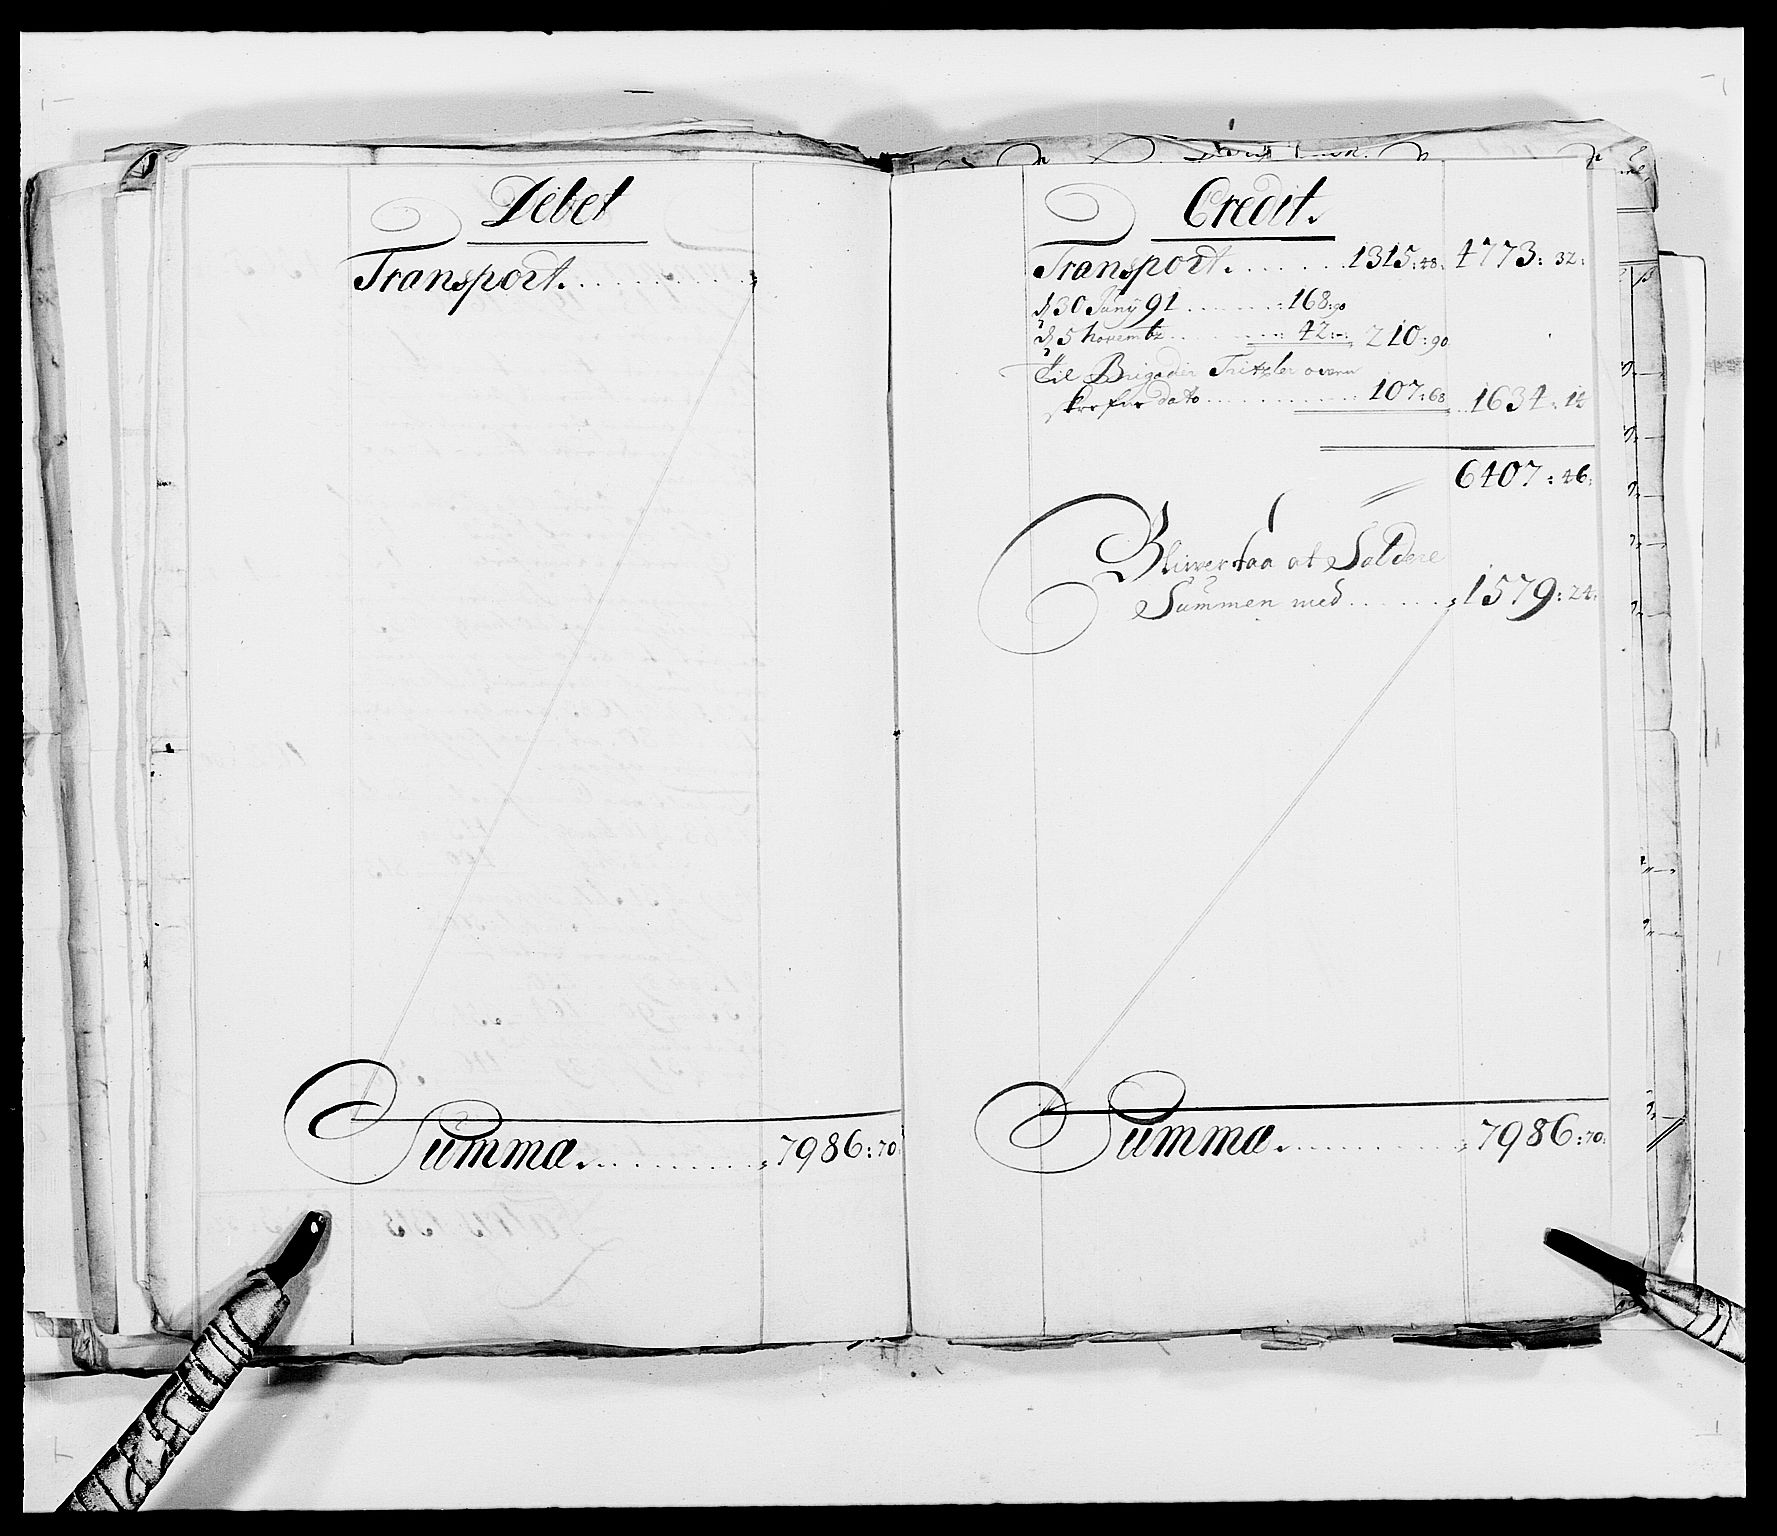 Debet
Transport.
Summa 7986:70
Credit.
Transport. 1315:48. 4773: 32:
d 30 Junÿ 91 168:90
d 5 novembr 42:-: 210:90
til Brigadier Tritzler
dato 107:68 1634: 14
6407: 46:
Bliwer daa at Soldere
Summen med 1579:24:
Summa 7986:70: